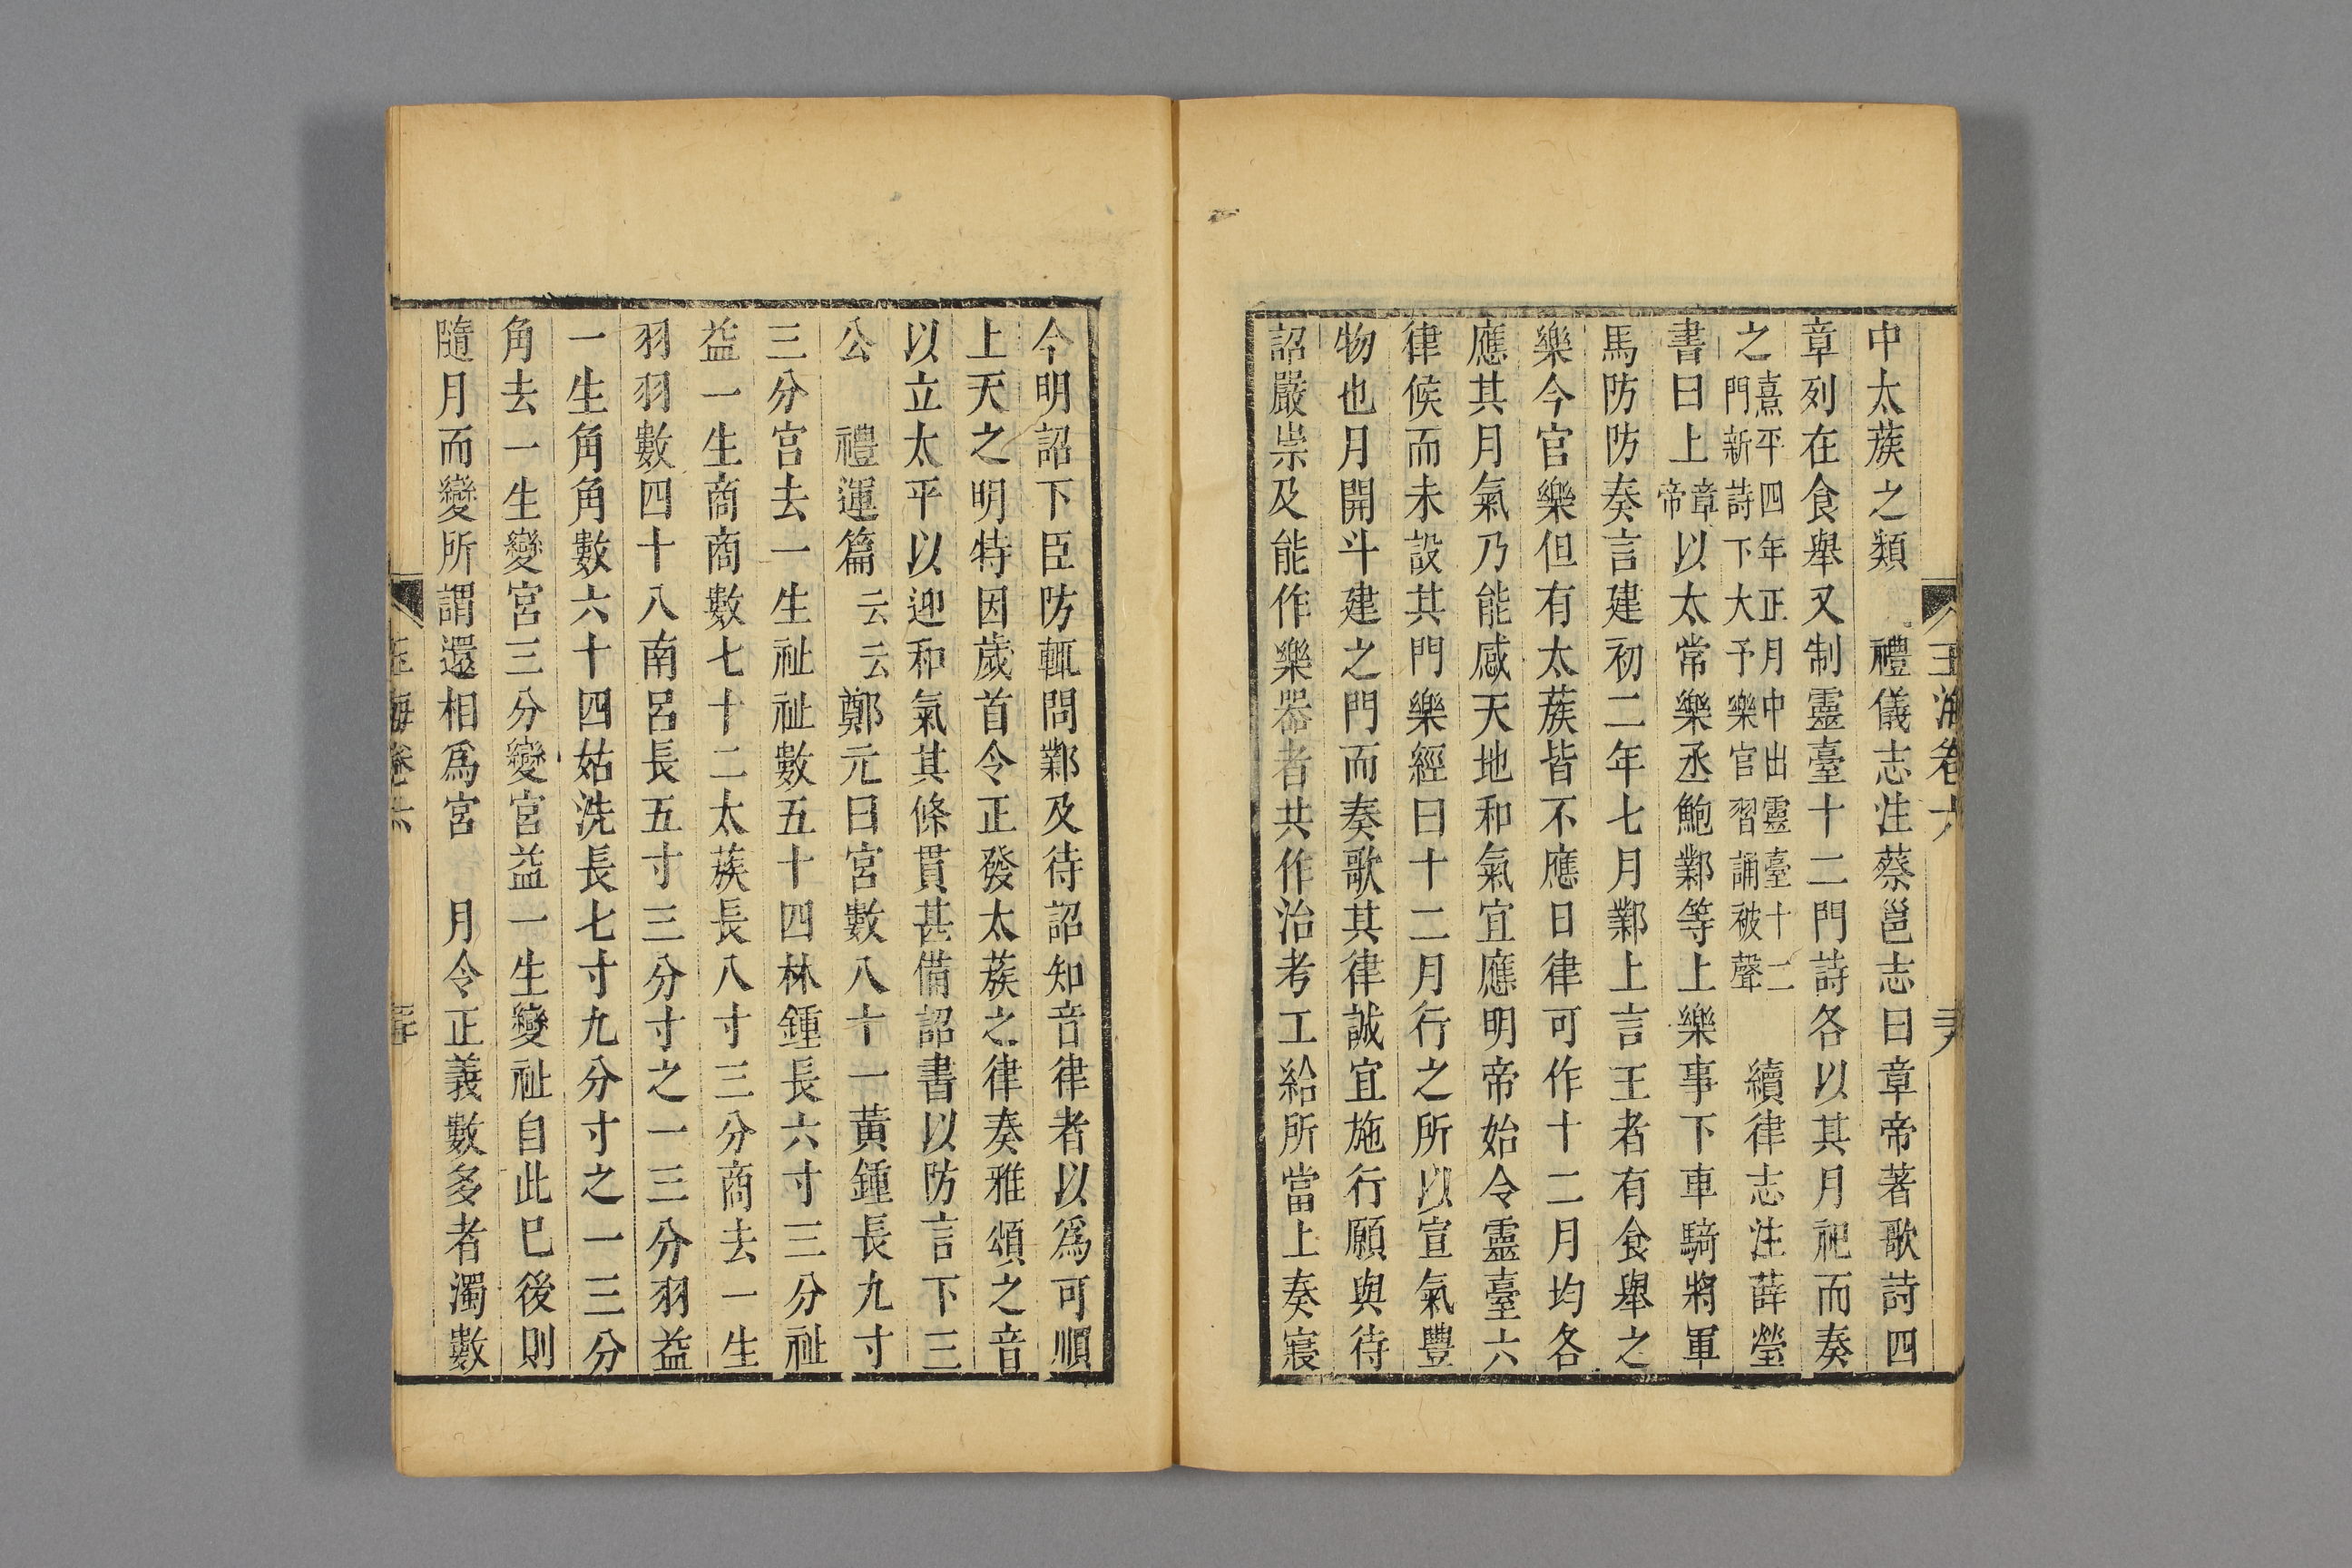 中太蔟之類　禮儀志注蔡邕志曰章帝著歌詩四
章列在食舉又制靈臺十二門詩各以其月祀而奏
之熹平四年正月中出靈臺十二門新詩下大予樂官習誦被聲　續律志注薛瑩
書曰上章帝以太常樂丞鮑鄴等上樂事下車騎將軍
馬防防奏言建初二年七月鄴上言王者有食舉之
樂今官樂但有太蔟皆不應日律可作十二月均各
應其月氣乃能感天地和氣宜應明帝始令靈臺六
律候而未設其門樂經曰十二月行之所以宣氣豐
物也月開斗建之門而奏歌其律誠宜施行願與待
詔嚴崇及能作樂器者共作治考工給所當上奏寢
玉海卷六
今明詔下臣防輒問鄴及待詔知音律者以爲可順
上天之明特因歲首令正發太蔟之律奏雅頌之音
以立太平以迎和氣其條貫甚備詔書以防言下三
公　禮運篇云云鄭元曰宮數八十一黃鍾長九寸
三分宮去一生祉祉數五十四林鍾長六寸三分祉
益一生商商數七十二太蔟長八寸三分商去一生
羽羽數四十八南呂長五寸三分寸之一三分羽益
一生角角數六十四姑洗長七寸九分寸之一三分
角去一生變宮三分變宮益一生變祉自此巳後則
隨月而變所謂還相爲宮　月令正義數多者濁數
玉海卷六